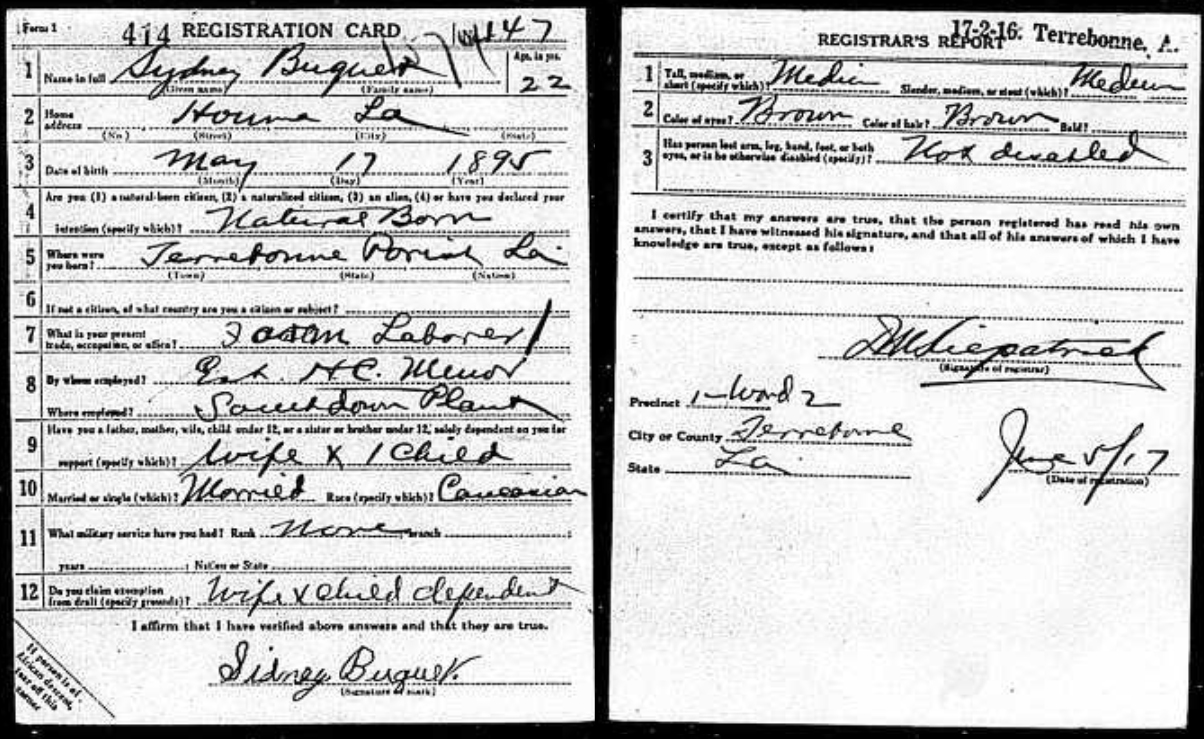 Form 1
414 REGISTRATION CARD No. 147
1 Name in full Sydney Buquet Age, in yrs. 22
(Given name) (Family name)
2 Home address Houma La
(No.) (Street) (City) (State)
3 Date of birth May 17 1895
(Month) (Day) (Year)
Are you (1) a natural-born citizen, (2) a naturalized citizen, (3) an alien, (4) or have you declared your
4 intention (specify which)? Natural Born
5 Where were you born? Terrebonne Parish La
(Town) (State) (Nation)
6 If not a citizen, of what country are you a citizen or subject?
7 What is your present trade, occupation, or office? Laborer
8 By whom employed? Est. H.C. Minor
Where employed? Southdown Plant
Have you a father, mother, wife, child under 12, or a sister or brother under 12, solely dependent on you for
9 support (specify which)? Wife & 1 Child
10 Married or single (which)? Married Race (specify which)? Caucasian
11 What military service have you had? Rank None branch
years ; Nation or State
12 Do you claim exemption from draft (specify grounds)? Wife & child dependent
I affirm that I have verified above answers and that they are true.
Sidney Buquet.
(Signature or mark)
If person is of
African descent,
tear off this
corner
17-2-16. Terrebonne, A.
REGISTRAR'S REPORT
1 Tall, medium, or short (specify which)? Medium Slender, medium, or stout (which)? Medium
2 Color of eyes? Brown Color of hair? Brown Bald?
3 Has person lost arm, leg, hand, foot, or both eyes, or is he otherwise disabled (specify)? Not disabled
I certify that my answers are true, that the person registered has read his own
answers, that I have witnessed his signature, and that all of his answers of which I have
knowledge are true, except as follows:
Kilpatrick
(Signature of registrar)
Precinct 1-Ward 2
City or County Terrebonne
State La
June 5/17
(Date of registration)